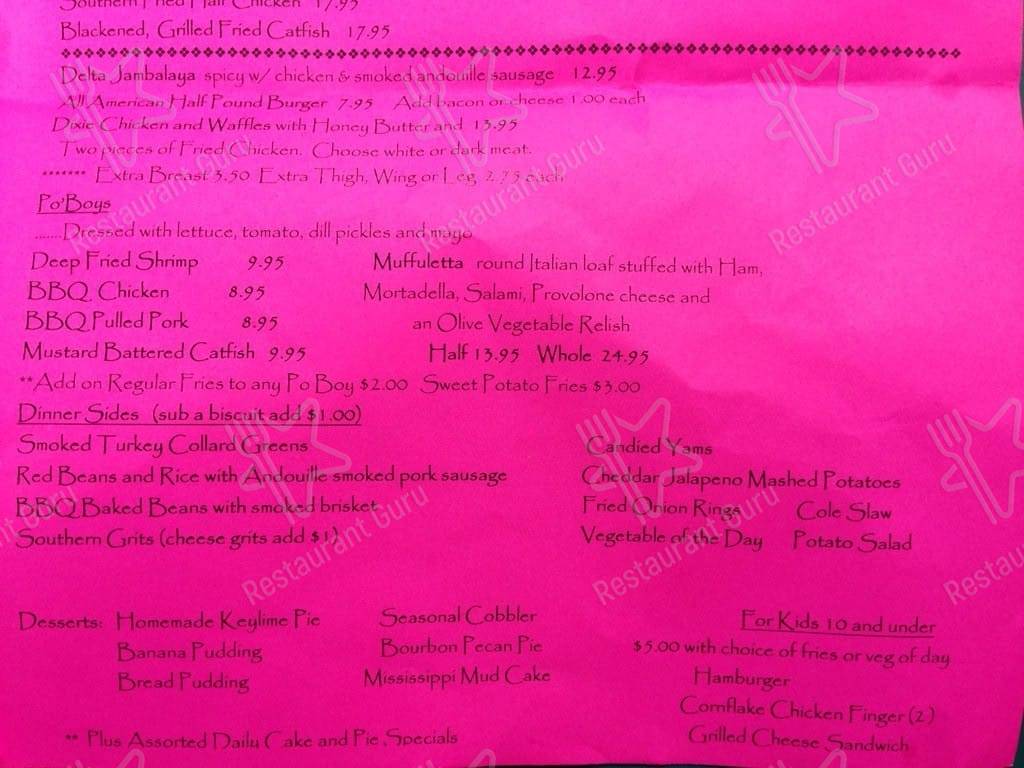 Southern Fried Half Chicken 17.95
Blackened, Grilled Fried Catfish 17.95
Delta Jambalaya spicy w/ chicken & smoked andouille sausage 12.95
All American Half Pound Burger 7.95 Add bacon or cheese 1.00 each
Dixie Chicken and Waffles with Honey Butter and 13.95
Two pieces of Fried Chicken. Choose white or dark meat.
******* Extra Breast 3.50 Extra Thigh, Wing or Leg 2.75 each
Po'Boys
.......Dressed with lettuce, tomato, dill pickles and mayo
Deep Fried Shrimp 9.95 Muffuletta round Italian loaf stuffed with Ham,
BBQ Chicken 8.95 Mortadella, Salami, Provolone cheese and
BBQ Pulled Pork 8.95 an Olive Vegetable Relish
Mustard Battered Catfish 9.95 Half 13.95 Whole 24.95
**Add on Regular Fries to any Po Boy $2.00 Sweet Potato Fries $3.00
Dinner Sides (sub a biscuit add $1.00)
Smoked Turkey Collard Greens Candied Yams
Red Beans and Rice with Andouille smoked pork sausage Cheddar Jalapeno Mashed Potatoes
BBQ Baked Beans with smoked brisket Fried Onion Rings Cole Slaw
Southern Grits (cheese grits add $1) Vegetable of the Day Potato Salad
Desserts: Homemade Keylime Pie Seasonal Cobbler For Kids 10 and under
Banana Pudding Bourbon Pecan Pie $5.00 with choice of fries or veg of day
Bread Pudding Mississippi Mud Cake Hamburger
Cornflake Chicken Finger (2)
** Plus Assorted Daily Cake and Pie Specials Grilled Cheese Sandwich
Restaurant Guru
Restaurant Guru
Restaurant Guru
Restaurant Guru
Restaurant Guru